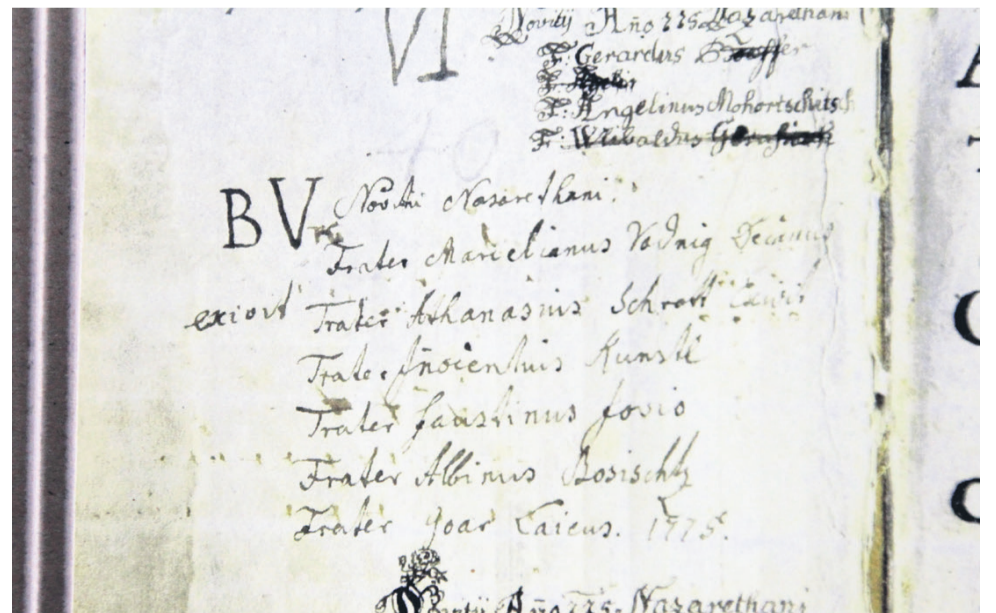 VI
Novitÿ Año 775 Nazarethani
F: Gerardus
F:
F: Angelinus Mohortschitsch
F: Wibaldus
BV Novitii Nazarethani.
Frater Marcelianus Vodnig
exivit Frater Athanasius Schrott Exivit
Frater Inocentius Kunstl
Frater Faustinus Josio
Frater Albinus Bosischtz
Frater Goar Laicus. 1775.
Año 775 Nazarethani